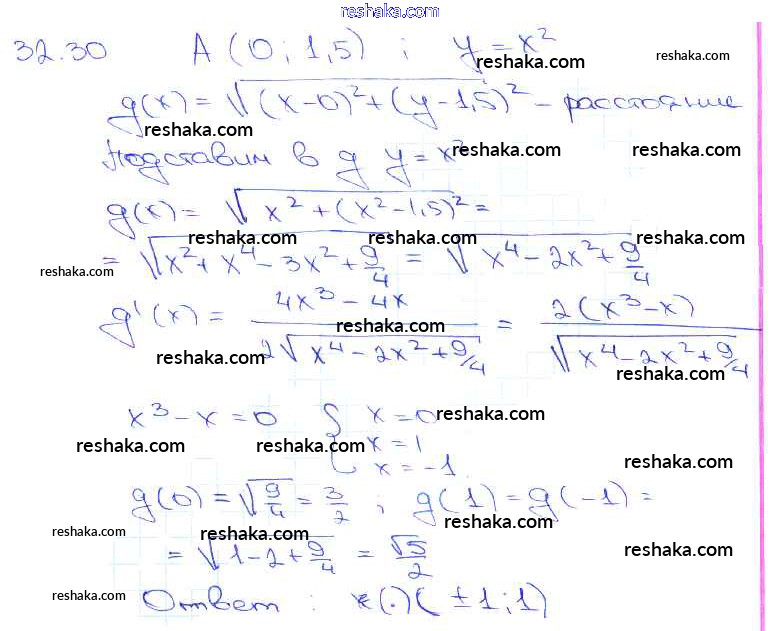 reshaka.com
32.30 A (0; 1,5) ; y = x²
reshaka.com reshaka.com
g(x) = √((x-0)² + (y-1,5)²) - расстояние
reshaka.com
Подставим в g y = x²
reshaka.com reshaka.com
g(x) = √(x² + (x²-1,5)²) =
reshaka.com reshaka.com
= √(x² + x⁴ - 3x² + 9/4) = √(x⁴ - 2x² + 9/4)
reshaka.com
g'(x) = (4x³ - 4x)/(2√(x⁴ - 2x² + 9/4)) = 2(x³ - x)/√(x⁴ - 2x² + 9/4)
reshaka.com
reshaka.com reshaka.com
x³ - x = 0 { x = 0
reshaka.com
x = 1
reshaka.com reshaka.com
x = -1
reshaka.com
g(0) = √(9/4) = 3/2 ; g(1) = g(-1) =
reshaka.com reshaka.com reshaka.com
= √(1 - 2 + 9/4) = √5/2
reshaka.com
Ответ : (·) (±1; 1)
reshaka.com